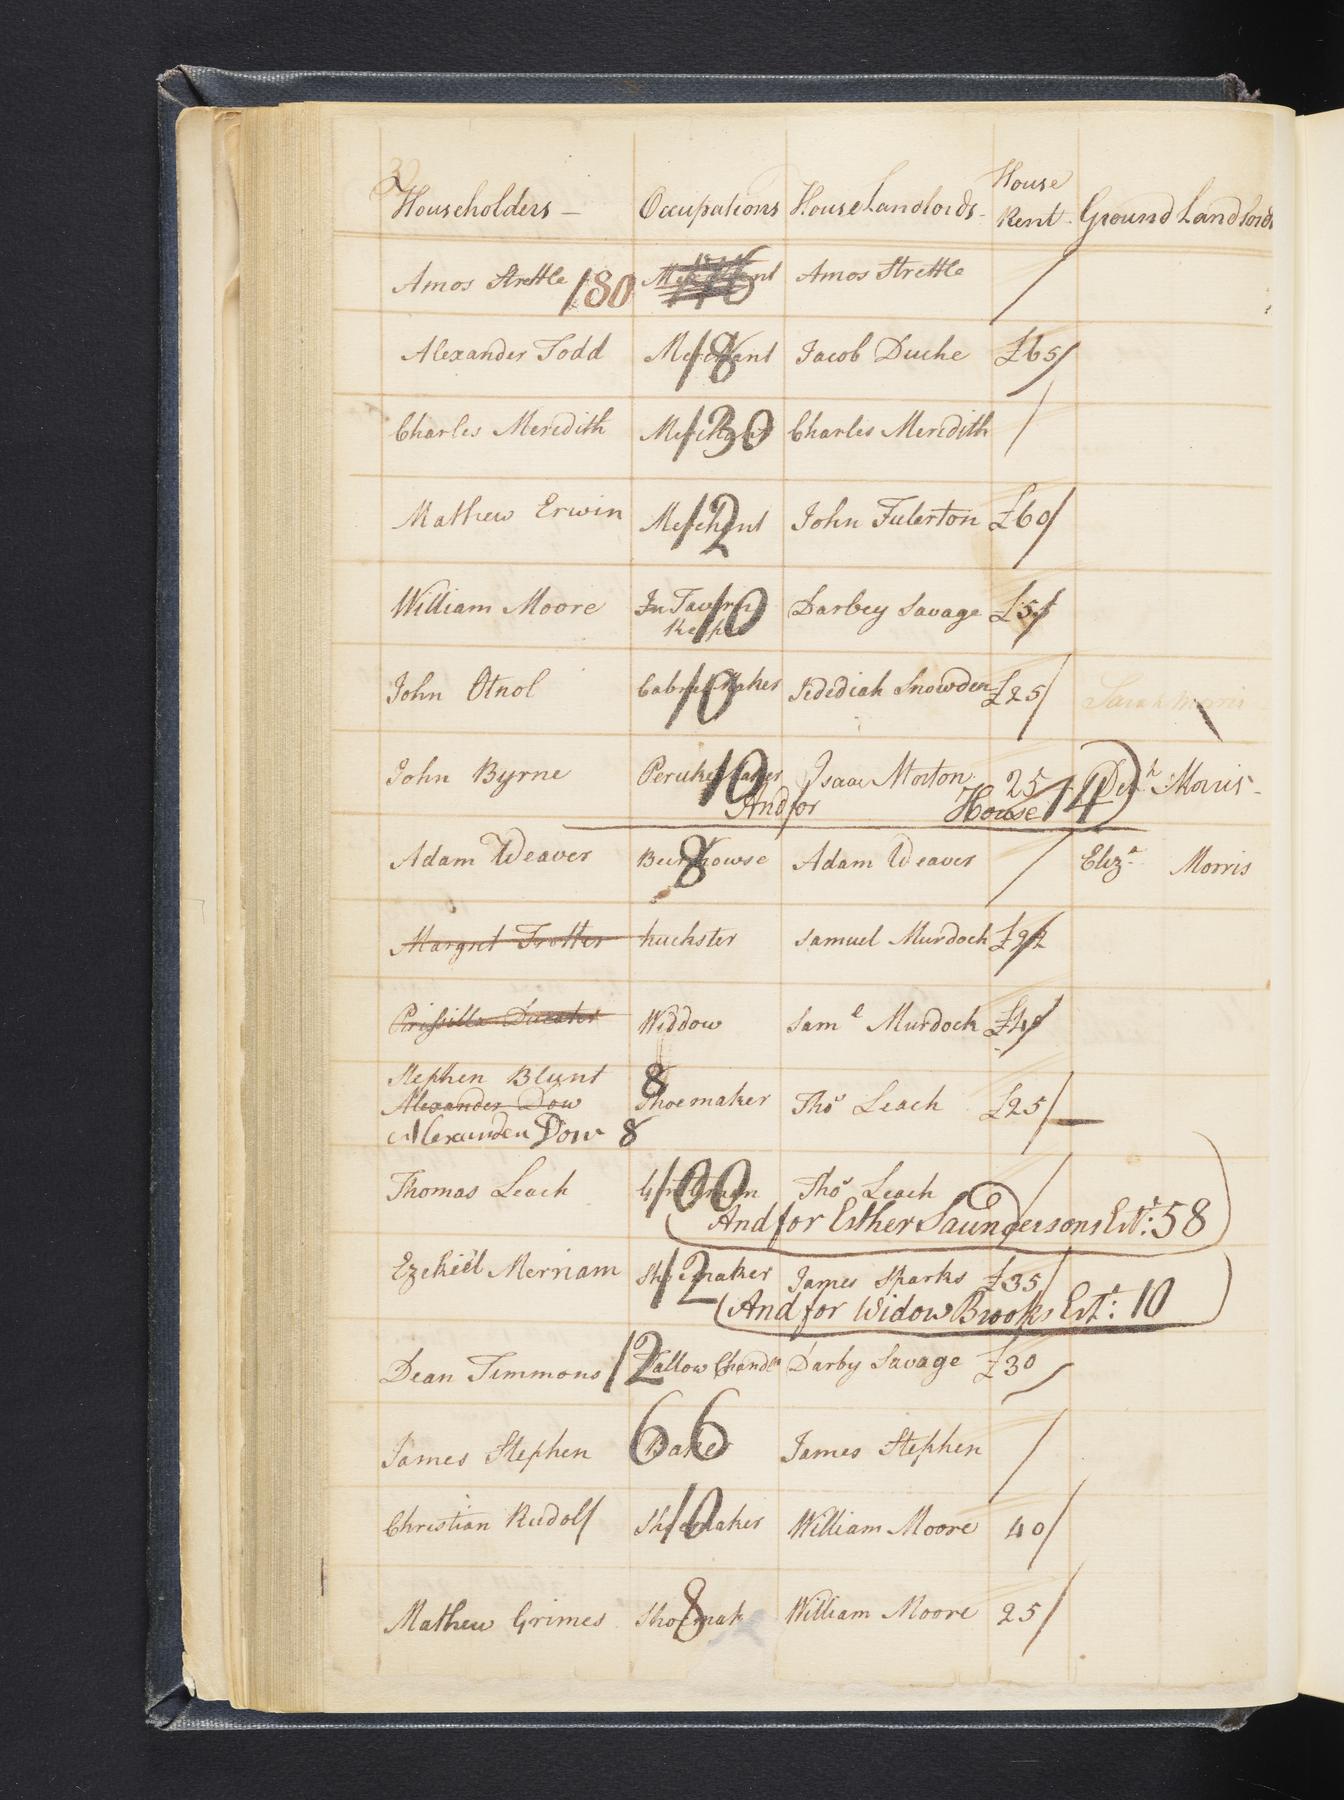 Householders – Occupations House Landlords - House Rent - Ground Landlords
Amos Strettle 180 Merchant Amos Strettle /
Alexander Todd Merchant 18 Jacob Duche £65/
Charles Meredith Merchant 130 Charles Meredith /
Mathew Erwin Merchant 12 John Fulerton £60/
William Moore In Tavern Keeper 10 Darbey Savage £55
John Otnol Cabinet Maker 10 Jedediah Snowden £25/ Sarah Morris
John Byrne Peruke Maker 10 Isaac Morton 25 Deb.h Morris -
And for House 14
Adam Weaver Beerhowse 8 Adam Weaver / Eliz.a Morris
Margret Trotter huckster Samuel Murdock
Widdow Sam.l Murdock
Stephen Blunt 8
Alexander Dow Shoemaker Tho.s Leach £25/
Alexander Dow 8
Thomas Leach 100 Tho.s Leach /
And for Esther Saundersons Est.: 58
Ezekiel Merriam Shoemaker 12 James Sparks £35/
And for Widow Brooks Est.: 10
Dean Timmons 12 Tallow Chandlr Darby Savage £30
James Stephen Baker 66 James Stephen /
Christian Rudolf Shoemaker 10 William Moore 40/
Mathew Grimes Shoemak 8 William Moore 25/